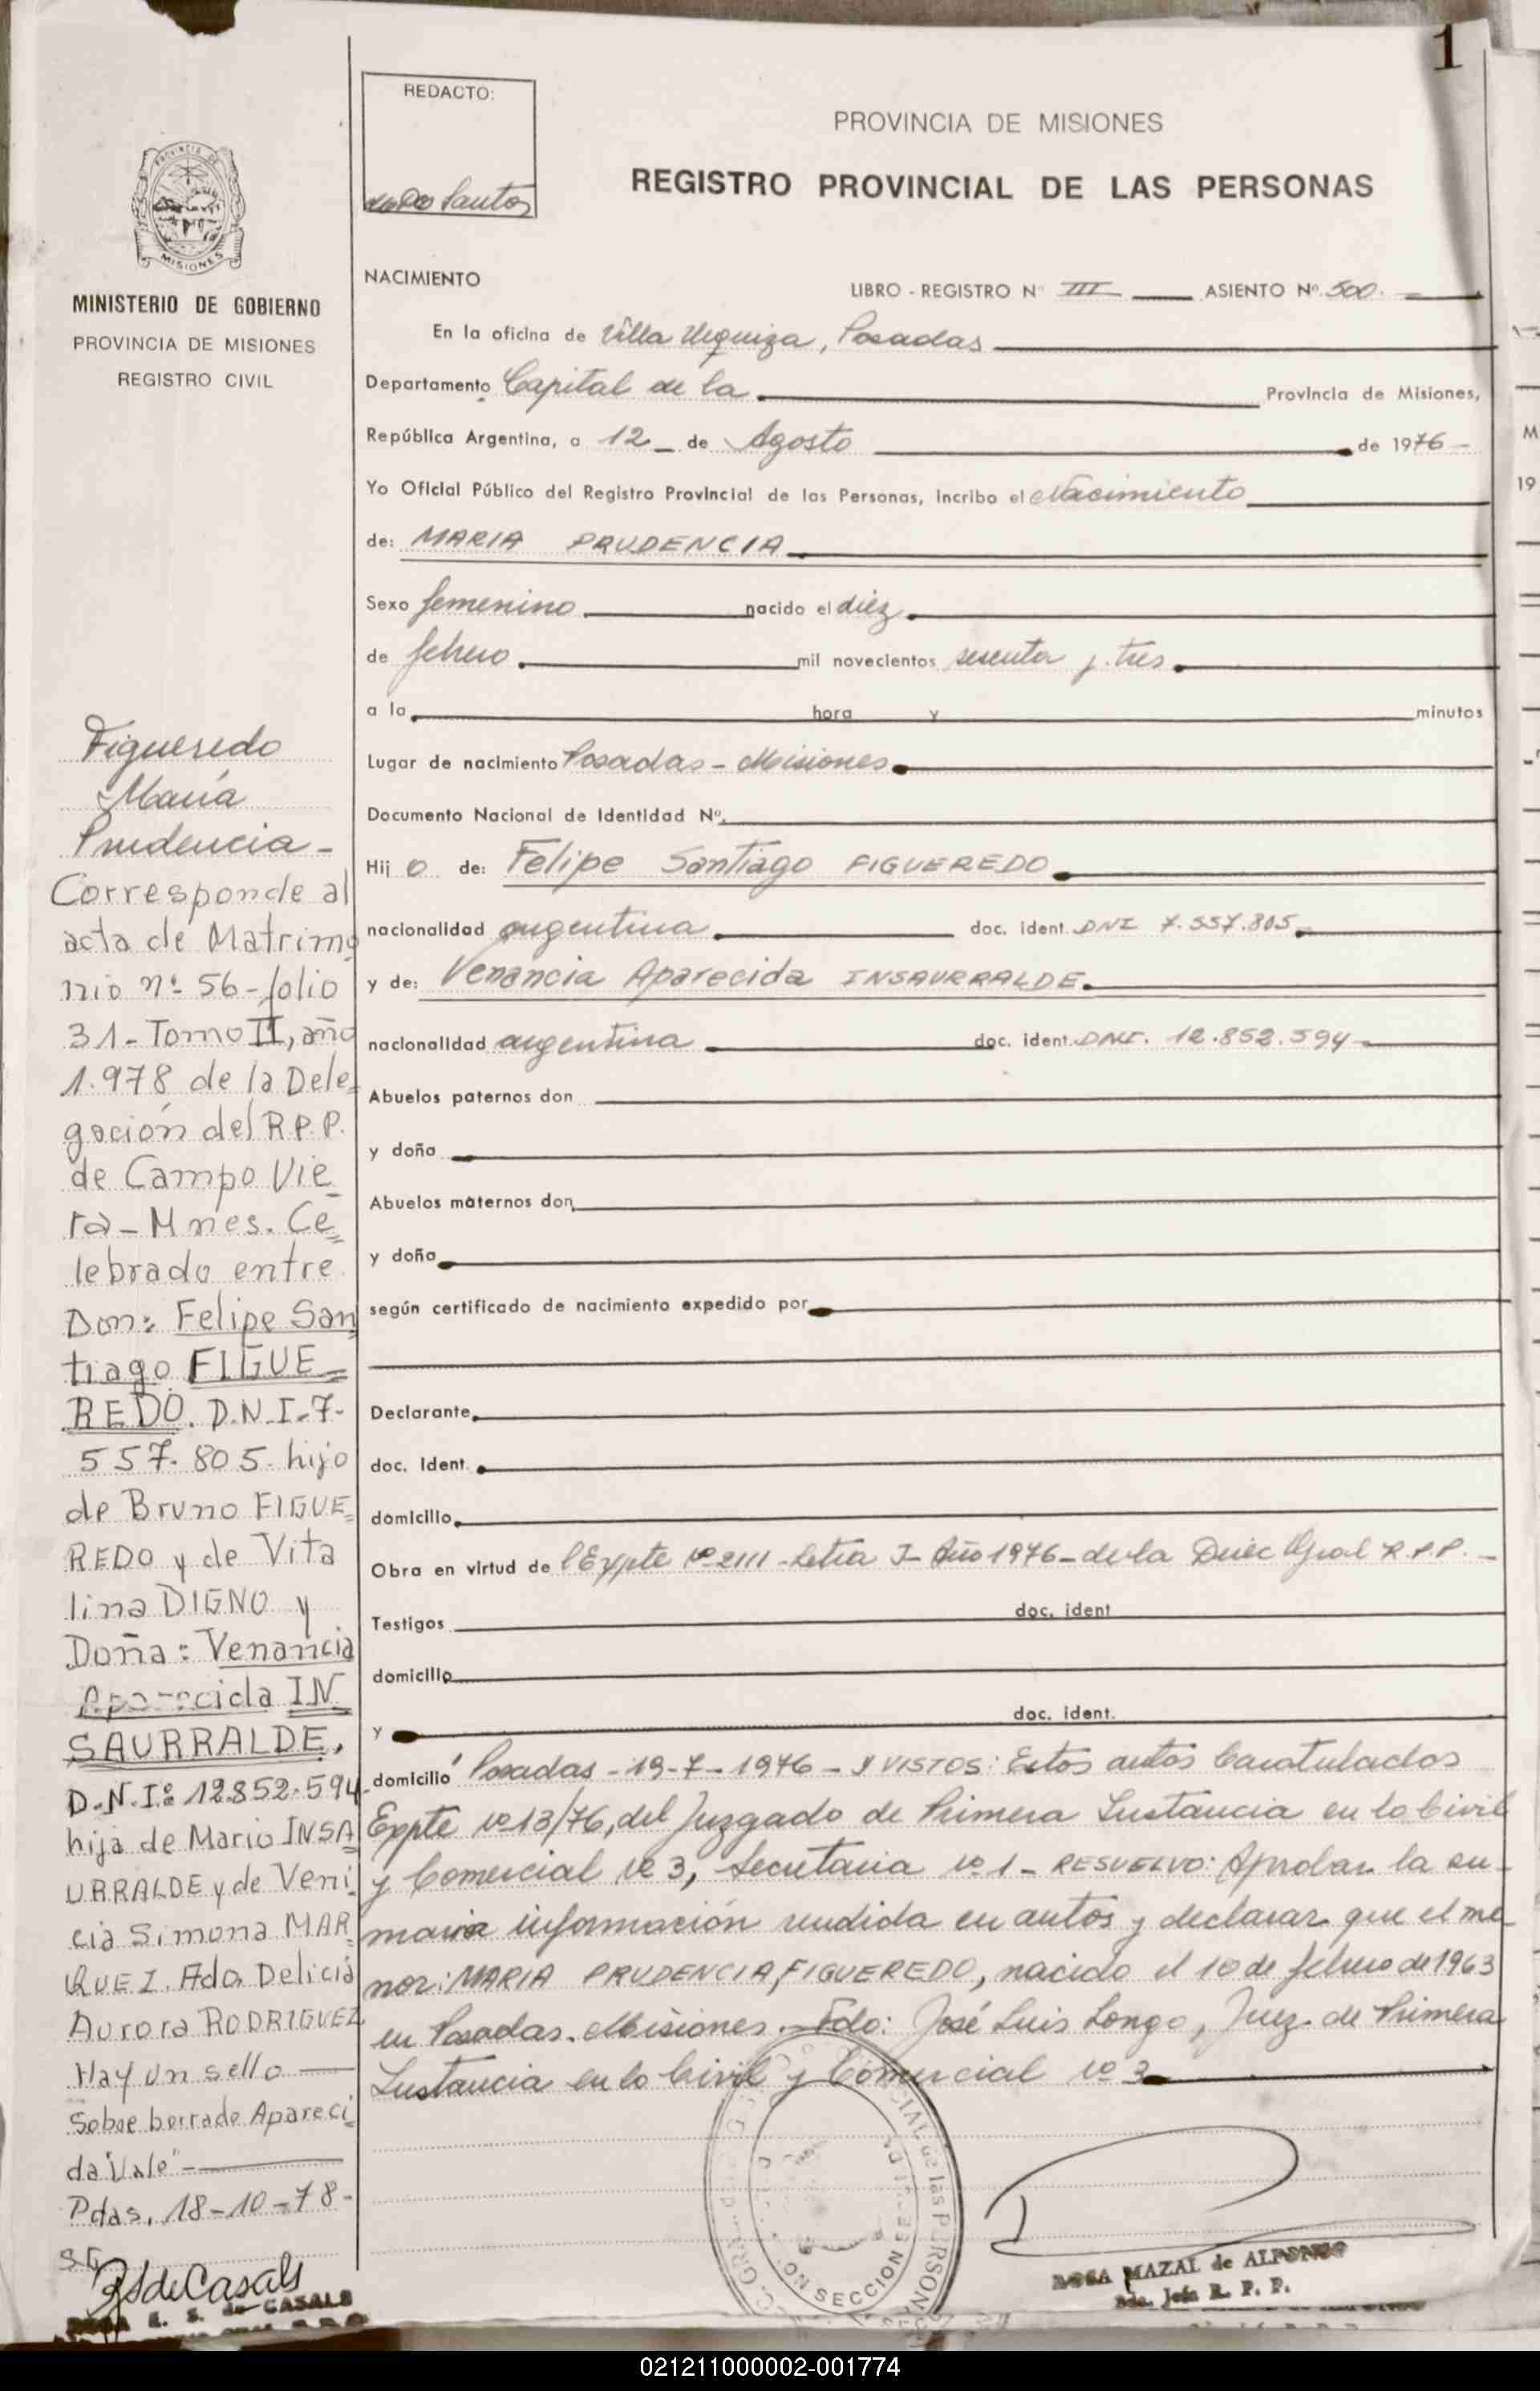 1
REDACTO:
Santos
PROVINCIA DE MISIONES
REGISTRO PROVINCIAL DE LAS PERSONAS
PROVINCIA DE
MISIONES
MINISTERIO DE GOBIERNO
PROVINCIA DE MISIONES
REGISTRO CIVIL
NACIMIENTO
LIBRO - REGISTRO Nº III ASIENTO Nº 500.
En la oficina de Villa Urquiza, Posadas
Departamento Capital de la Provincia de Misiones,
República Argentina, a 12 de Agosto de 1976-
Yo Oficial Público del Registro Provincial de las Personas, incribo el Nacimiento
de: MARIA PRUDENCIA
Sexo femenino nacido el diez
de febrero mil novecientos sesenta y tres
a la hora y minutos
Lugar de nacimiento Posadas - Misiones
Documento Nacional de Identidad Nº
Hij o de: Felipe Santiago FIGUEREDO
nacionalidad argentina doc. ident. DNI 7.557.805
y de: Venancia Aparecida INSAURRALDE
nacionalidad argentina doc. ident. DNI. 12.852.594
Abuelos paternos don
y doña
Abuelos maternos don
y doña
según certificado de nacimiento expedido por
Declarante
doc. Ident.
domicilio
Obra en virtud de l'Expte Nº 2111 - Letra I - Año 1976 - de la Direc Gral R.P.P. -
Testigos doc. ident
domicilio
y doc. ident.
domicilio Posadas - 19-7-1976 - Y VISTOS: Estos autos Caratulados
Expte Nº 13/76, del Juzgado de Primera Instancia en lo Civil
y Comercial Nº 3, Secretaria Nº 1 - RESUELVO: Aprobar la su-
maria información rendida en autos y declarar que el me-
nor: MARIA PRUDENCIA, FIGUEREDO, nacido el 10 de febrero de 1963
en Posadas. Misiones. - Fdo: José Luis Longo, Juez de Primera
Instancia en lo Civil y Comercial Nº 3
Figueredo
María
Prudencia -
Corresponde al
acta de Matrimo
nio nº 56 - folio
31 - Tomo II, año
1.978 de la Dele-
gación del R.P.P.
de Campo Vie
ra - Mnes. Ce=
lebrado entre
Don: Felipe San
tiago FIGUE=
REDO. D.N.I. 7-
557-805- hijo
de Bruno FIGUE=
REDO y de Vita
lina DIGNO y
Doña: Venancia
Aparecida IN
SAURRALDE,
D.N.I: 12852-594
hija de Mario INSA
URRALDE y de Veni
cia Simona MAR
QUEZ. Fdo. Delicia
Aurora RODRIGUEZ
Hay un sello
Sobre borrado Apareci
da "Vale" -
Pdas, 18-10-78-
SG
RSdeCasals
ROSA E. S. de CASALS
SECCION
ROSA MAZAL de ALFONSO
Sda. Jefa R. P. P.
M
19
021211000002-001774